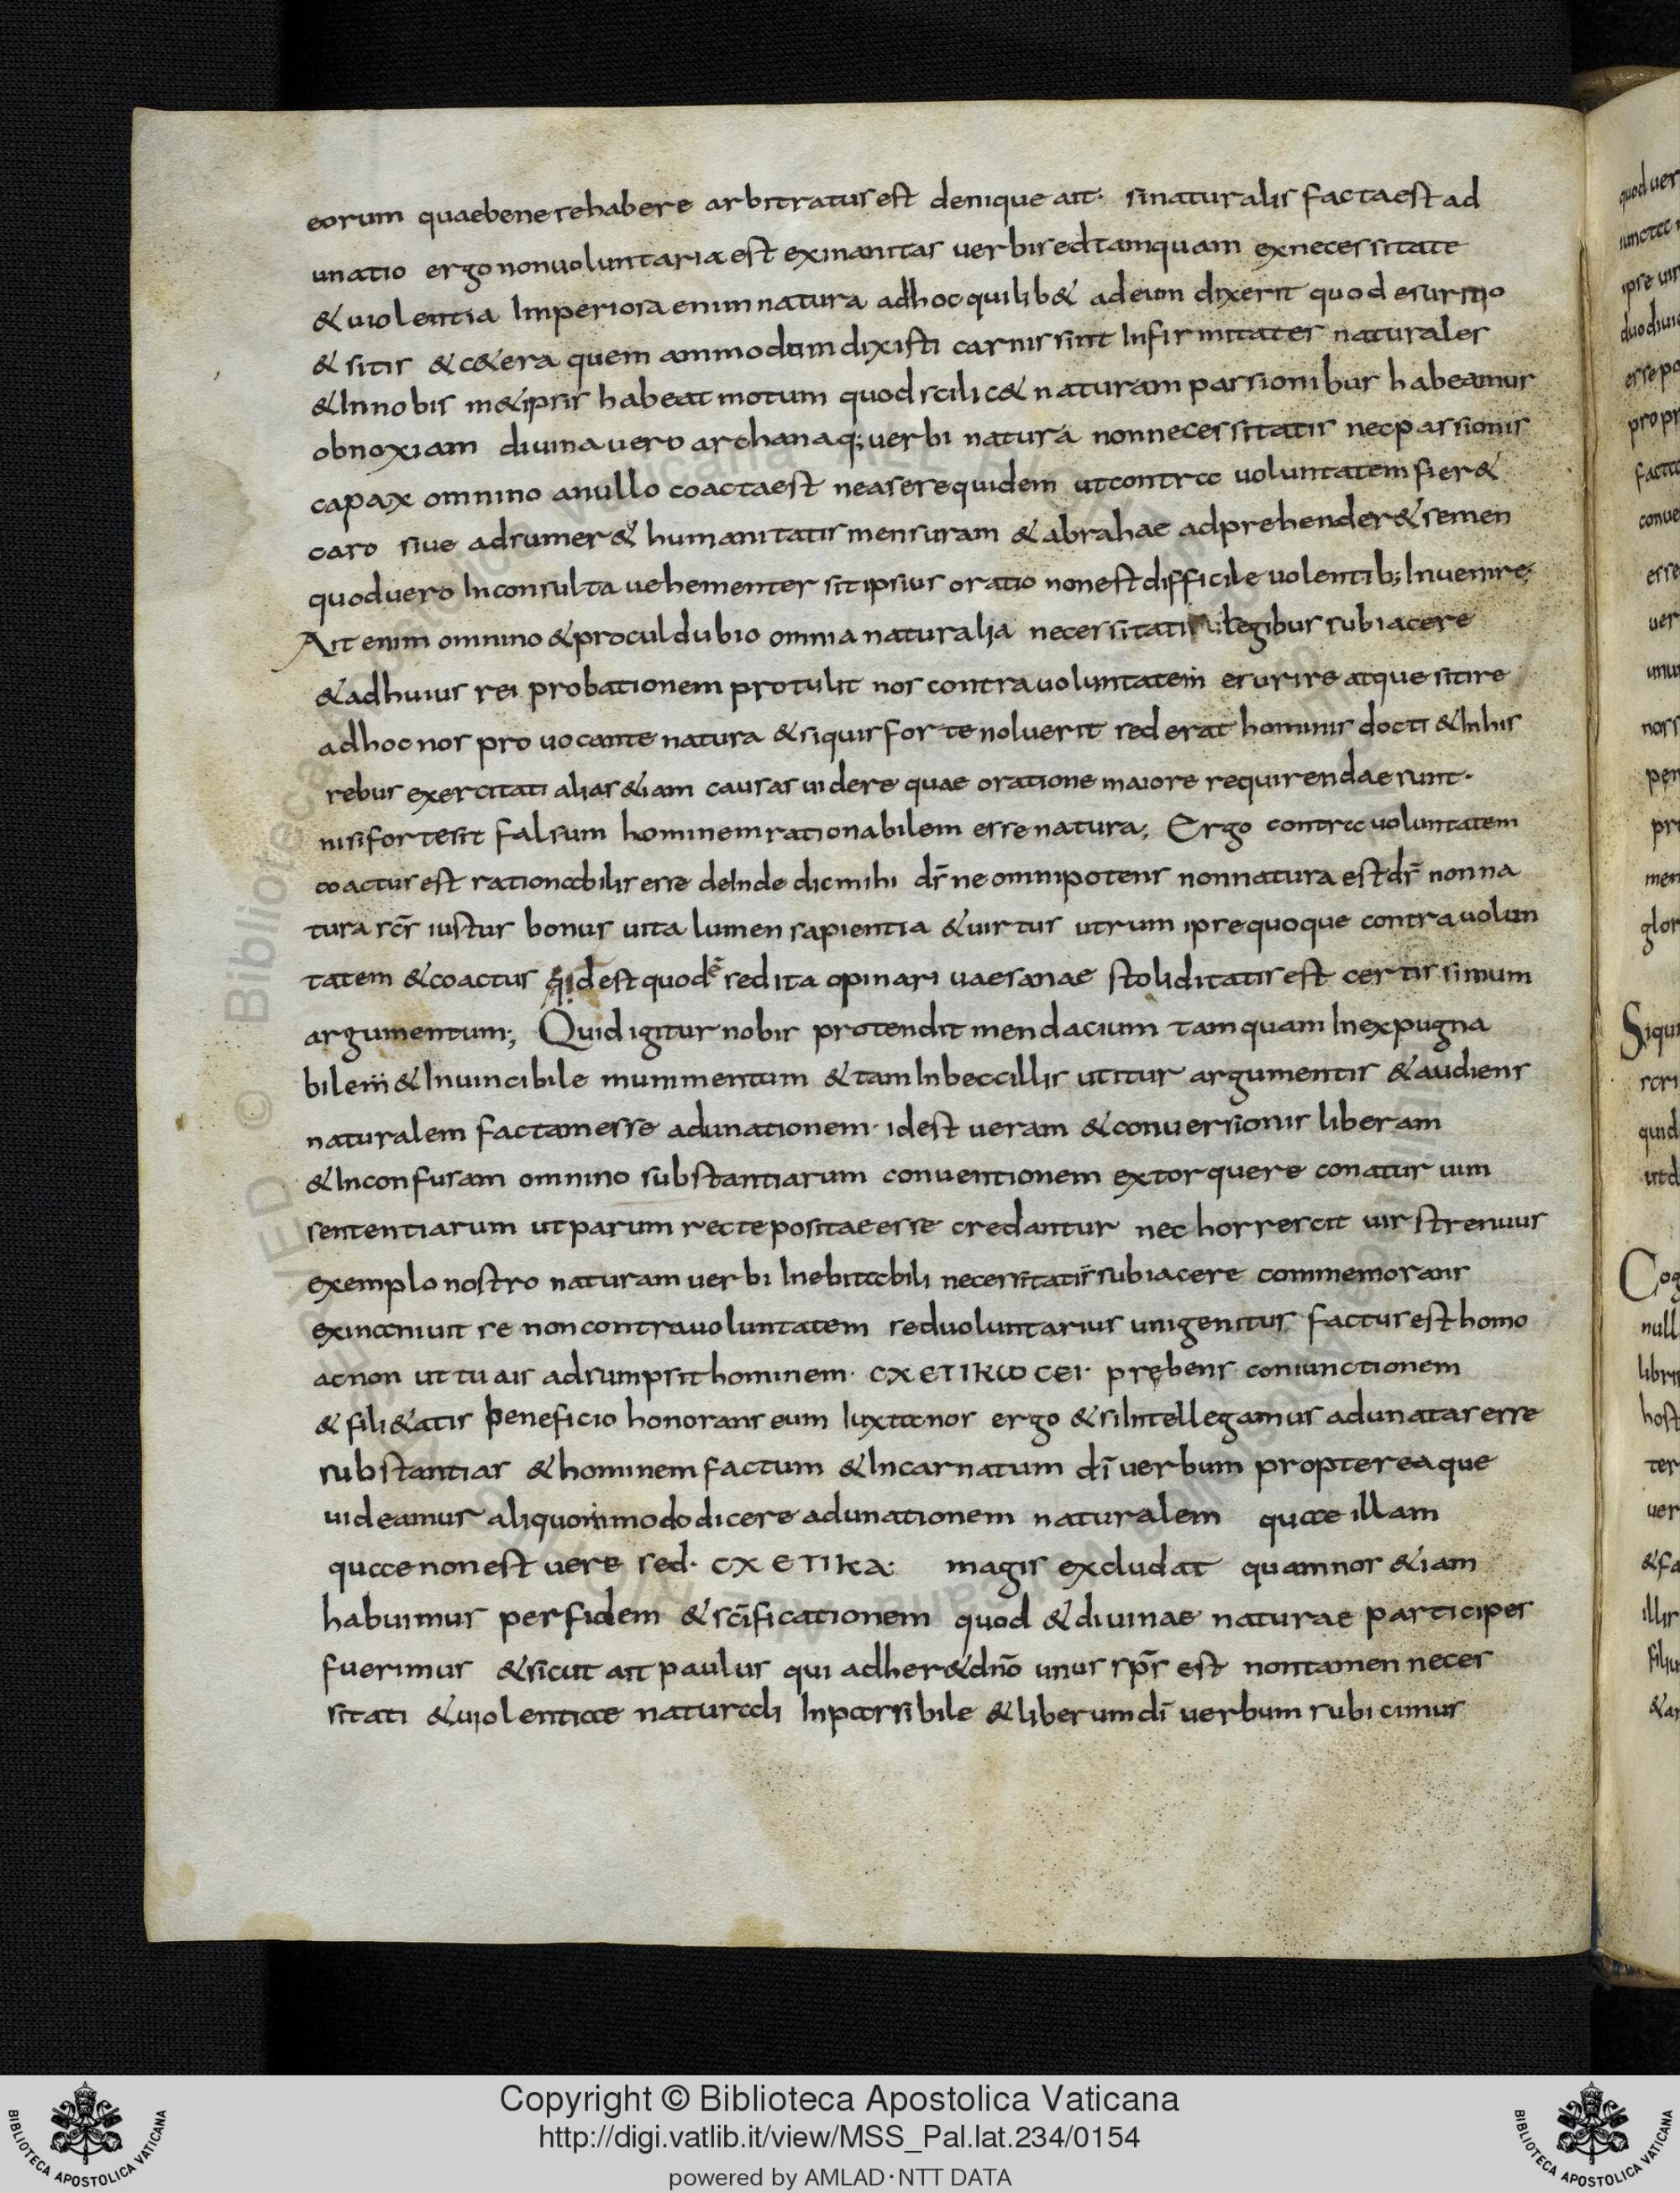 eorum quae bene se habere arbitratus est denique ait· si naturalis facta est ad
unatio ergo non uoluntaria est exinanitas uerbi sed tamquam ex necessitate
& uiolentia Imperiosa enim natura ad hoc quilib& ad eum dixerit quod esuritio
& sitis & c&era quem ammodum dixisti carnis sunt Infirmitates naturales
& In nobis in & ipsis habeat motum quod scilic& naturam passionibus habeamus
obnoxiam diuina uero archanaq; uerbi natura non necessitatis nec passionis
capax omnino a nullo coacta est ne a se re quidem ut contra uoluntatem fier&
caro siue adsumer& humanitatis mensuram & abrahae adprehender& semen
quod uero Inconsulta uehementer sit ipsius oratio non est difficile uolentib; Inuenire;
Ait enim omnino & procul dubio omnia naturalia necessitatis legibus subiacere
& ad huius rei probationem protulit nos contra uoluntatem esurire atque sitire
ad hoc nos prouocante natura & si quis forte noluerit sed erat hominis docti & In his
rebus exercitati alias &iam causas uidere quae oratione maiore requirendae sunt·
nisi forte sit falsum hominem rationabilem esse natura; Ergo contra uoluntatem
coactus est rationabilis esse deInde dic mihi ds̄ ne omnipotens non natura est ds̄ non na
tura scs̄ iustus bonus uita lumen sapientia & uirtus utrum ipse quoque contra uolun
tatem & coactus id est quod ē sed ita opinari uaesanae stoliditatis est certissimum
argumentum; Quid igitur nobis protendit mendacium tamquam Inexpugna
bilem & Inuincibile munimentum & tam Inbeccillis utitur argumentis & audiens
naturalem factam esse adunationem· id est ueram & conuersionis liberam
& Inconfusam omnino substantiarum conuentionem extorquere conatur uim
sententiarum ut parum recte positae esse credantur nec horrescit uir strenuus
exemplo nostro naturam uerbi Inebitabili necessitatis subiacere commemorans
exinaniuit se non contra uoluntatem sed uoluntarius unigenitus factus est homo
ac non ut tu ais adsumpsit hominem· CXETIKωCEI· prębens coniunctionem
& fili&atis beneficio honorans eum Iuxta nos ergo & si Intellegamus adunatas esse
substantias & hominem factum & Incarnatum dī uerbum propterea que
uideamur aliquommodo dicere adunationem naturalem quae illam
quae non est uere sed· CXETIKA· magis excludat quam nos &iam
habuimus per fidem & scīficationem quod & diuinae naturae participes
fuerimus & sicut ait paulus qui adher& dnō unus sps̄ est non tamen neces
sitati & uiolentiae naturali Inpassibile & liberum dī uerbum subicimus
Copyright © Biblioteca Apostolica Vaticana
http://digi.vatlib.it/view/MSS_Pal.lat.234/0154
powered by AMLAD·NTT DATA
BIBLIOTECA APOSTOLICA VATICANA
BIBLIOTECA APOSTOLICA VATICANA